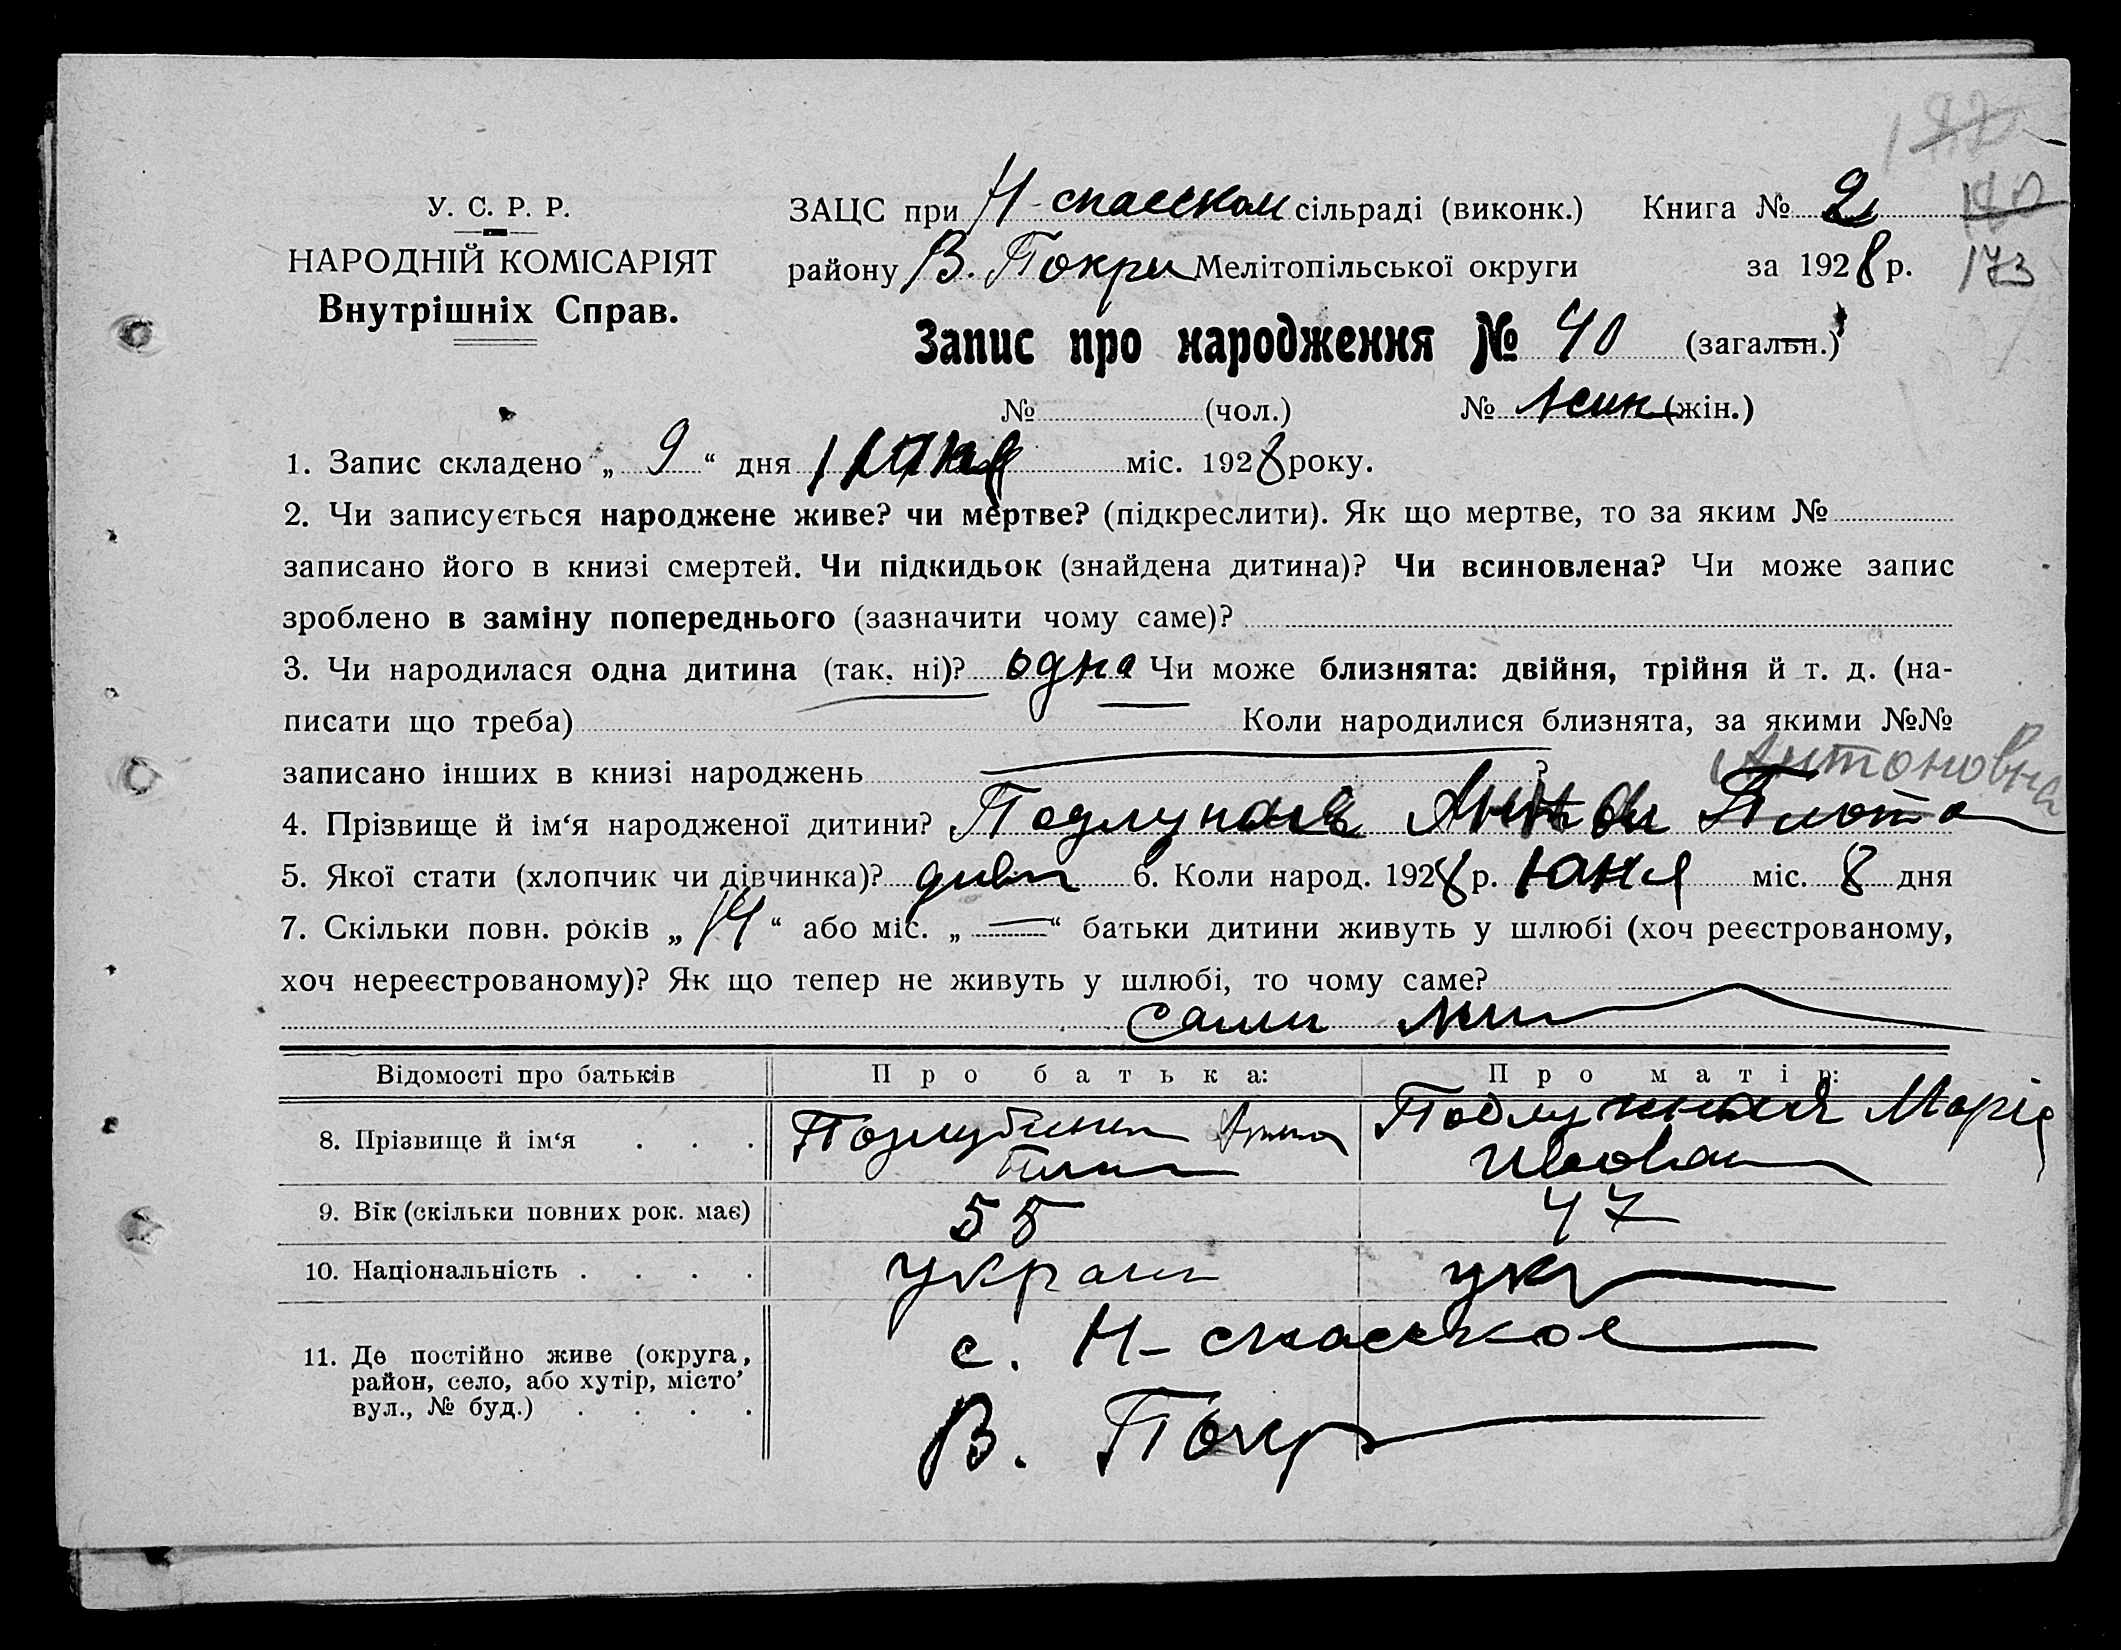 У. С. Р. Р.
НАРОДНІЙ КОМІСАРІЯТ
Внутрішніх Справ.
ЗАЦС при Н-спаском сільраді (виконк.) Книга № 2
180
району В. Покри Мелітопільської округи за 1928 р.
173
Запис про народження № 40 (загальн.)
№ (чол.) № жин (жін.)
1. Запис складено „ 9 “ дня юня міс. 1928 року.
2. Чи записується народжене живе? чи мертве? (підкреслити). Як що мертве, то за яким №
записано його в книзі смертей. Чи підкидьок (знайдена дитина)? Чи всиновлена? Чи може запис
зроблено в заміну попереднього (зазначити чому саме)?
3. Чи народилася одна дитина (так, ні)? одна Чи може близнята: двійня, трійня й т. д. (на-
писати що треба) Коли народилися близнята, за якими №№
записано інших в книзі народжень ?
Антоновна
4. Прізвище й ім‘я народженої дитини? Анна
5. Якої стати (хлопчик чи дівчинка)? дивч 6. Коли народ. 1928 р. юня міс. 8 дня
7. Скільки повн. років „ 14 “ або міс. „ — “ батьки дитини живуть у шлюбі (хоч реєстрованому,
хоч нереєстрованому)? Як що тепер не живуть у шлюбі, то чому саме?
Відомості про батьків Про батька: Про матір:
8. Прізвище й ім‘я . . . Марія
9. Вік (скільки повних рок. має) 55 47
10. Національність . . . . украин укр
11. Де постійно живе (округа, с. Н-спаское
район, село, або хутір, місто’
вул., № буд.) . . . . В. Покр